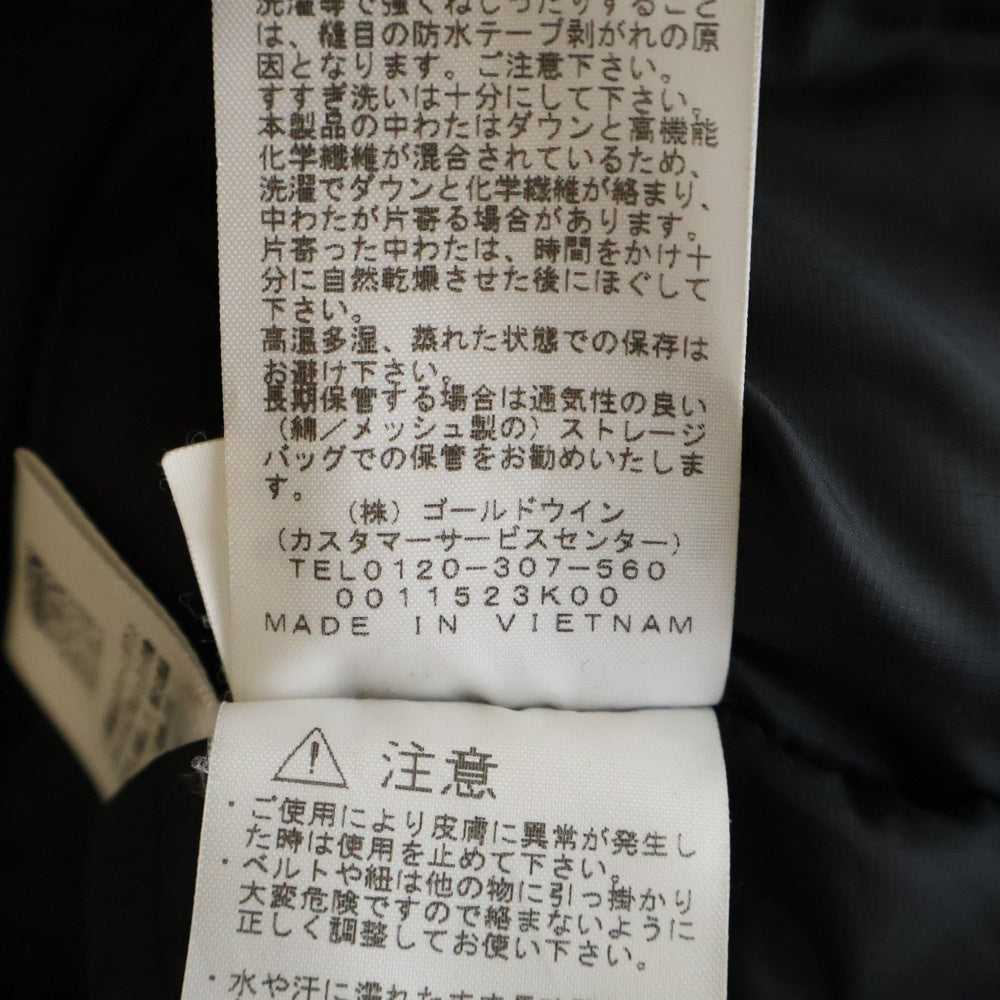 洗濯等で強くねじったりすること
は、縫目の防水テープ剥がれの原
因となります。ご注意下さい。
すすぎ洗いは十分にして下さい。
本製品の中わたはダウンと高機能
化学繊維が混合されているため、
洗濯でダウンと化学繊維が絡まり、
中わたが片寄る場合があります。
片寄った中わたは、時間をかけ十
分に自然乾燥させた後にほぐして
下さい。
高温多湿、蒸れた状態での保存は
お避け下さい。
長期保管する場合は通気性の良い
(綿/メッシュ製の)ストレージ
バッグでの保管をお勧めいたしま
す。
(株)ゴールドウイン
(カスタマーサービスセンター)
TEL0120-307-560
0011523K00
MADE IN VIETNAM
注意
・ご使用により皮膚に異常が発生し
た時は使用を止めて下さい。
・ベルトや紐は他の物に引っ掛かり
大変危険ですので絡まないように
正しく調整してお使い下さい。
・水や汗に濡れたまま